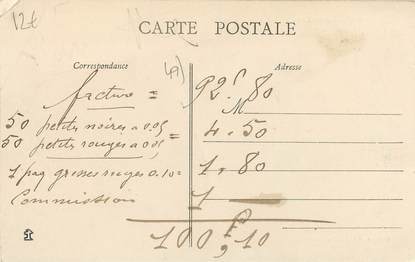 12€
CARTE POSTALE
49)
Correspondance
Adresse
facture = 92f 80
M
50 petits noires a 0.05 = 4.50
50 petits rouges a 0.05
1 paq grosses rouges 0.10 = 1.80
Commission 1
100f,10